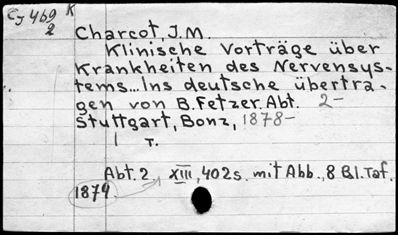 CJ 469 K
2
Charcot, J. M.
Klinische Vorträge über
Krankheiten des Nervensys-
tems... Ins deutsche übertra-
gen von B. Fetzer. Abt. 2-
Stuttgart, Bonz, 1878-
1 T.
Abt. 2. XIII, 402 s. mit Abb., 8 Bl. Taf.
1874